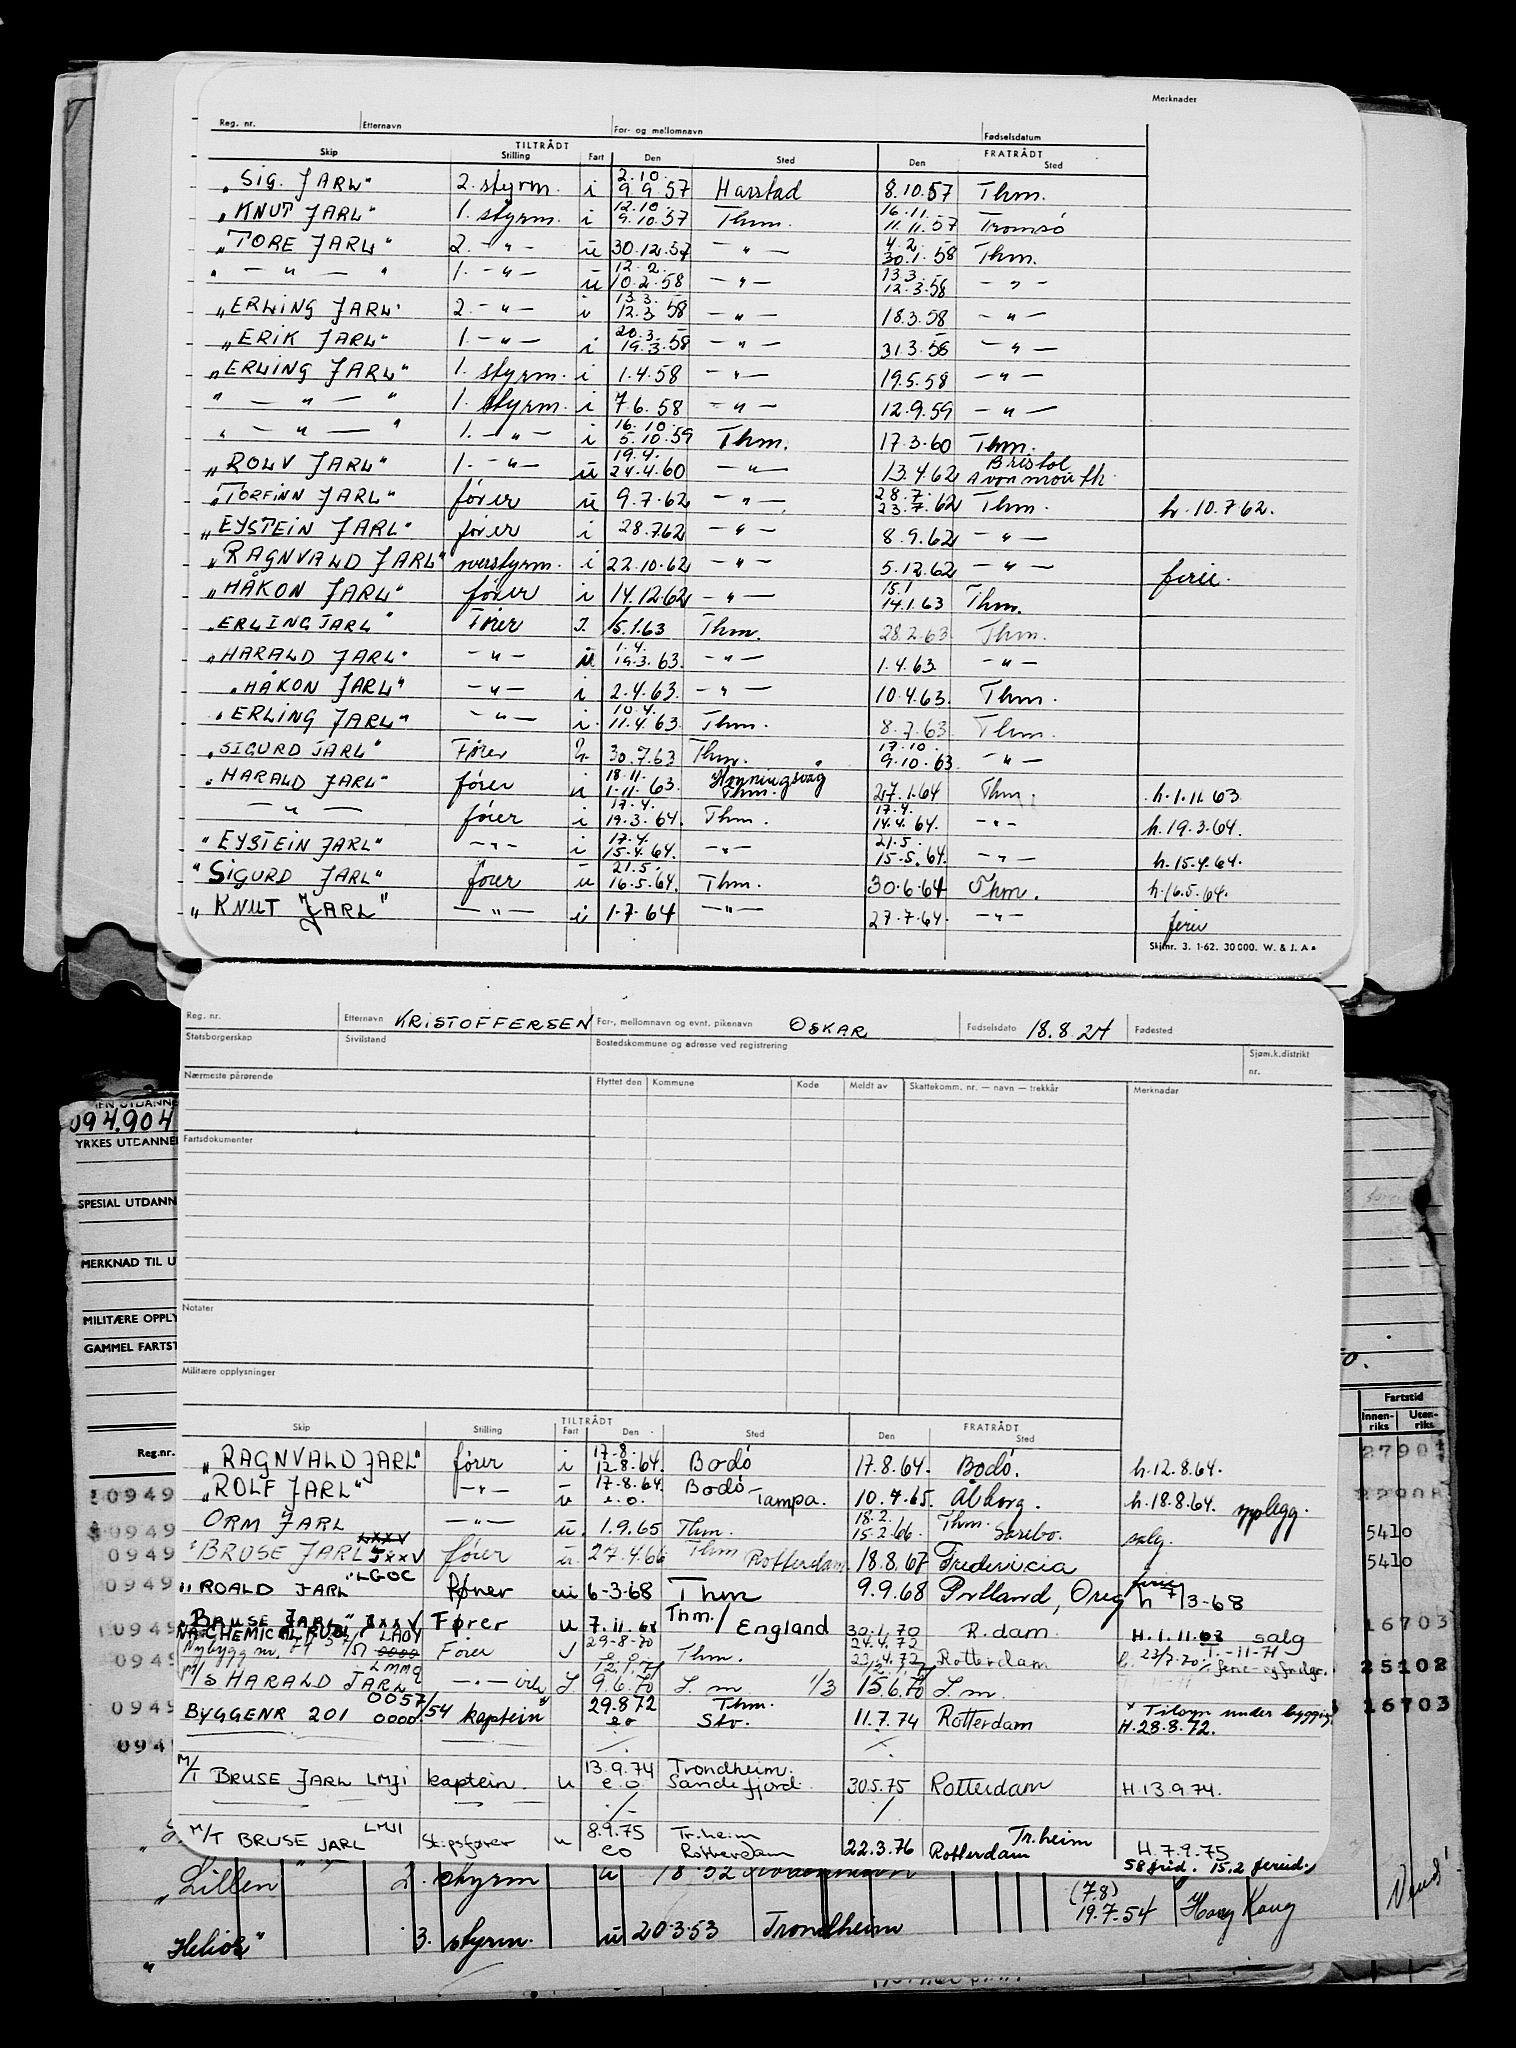 Merknader
Reg. nr. Etternavn For- og mellomnavn Fødselsdatum
TILTRÅDT FRATRÅDT
Skip Stilling Fart Den Sted Den Sted
„SIG. JARL" 2. styrm. i 2.10. 9.9.57 Harstad 8.10.57 Thm.
„KNUT JARL" 1. styrm. i 12.10. 9.10.57 Thm. 16.11. 11.11.57 Tromsö
„TORE JARL" 2. —"— u 30.12.57 —"— 4.2. 30.1.58 Thm.
" — " — " 1. —"— u 12.2. 10.2.58 —"— 13.3. 12.3.58 —"—
„ERLING JARL" 2. —"— i 13.3. 12.3.58 —"— 18.3.58 —"—
„ERIK JARL" 1. —"— i 20.3. 19.3.58 —"— 31.3.58 —"—
„ERLING JARL" 1. styrm. i 1.4.58 —"— 19.5.58 —"—
" — " — " 1. styrm. i 7.6.58 —"— 12.9.59 —"—
" — " — " 1. —"— i 16.10. 5.10.59 Thm. 17.3.60 Thm.
„ROLV JARL" 1. —"— u 19.4. 24.4.60 —"— 13.4.62 Bristol Avonmouth
„TORFINN JARL" fører u 9.7.62 —"— 28.7. 23.7.62 Thm. h. 10.7.62.
„EYSTEIN JARL" fører i 28.7.62 —"— 8.9.62 —"—
„RAGNVALD JARL" overstyrm. i 22.10.62 —"— 5.12.62 —"— ferie.
„HÅKON JARL" fører i 14.12.62 —"— 15.1 14.1.63 Thm.
„ERLING JARL" Fører I. 15.1.63 Thm. 28.2.63. Thm.
„HARALD JARL" —"— u 1.4. 19.3.63. —"— 1.4.63. —"—
„HÅKON JARL" —"— i 2.4.63. —"— 10.4.63. Thm.
„ERLING JARL" —"— i 10.4. 11.4.63. Thm. 8.7.63 Thm.
„SIGURD JARL" Fører 30.7.63 Thm. 17.10. 9.10.63 —"—
„HARALD JARL" fører i 18.11. 1.11.63 Honningsvåg Thm. 27.1.64 Thm. h. 1.11.63
—"— fører i 17.4. 19.3.64. Thm. 17.4. 14.4.64. —"— h. 19.3.64.
„EYSTEIN JARL" —"— i 17.4. 15.4.64. —"— 21.5. 15.5.64. —"— h. 15.4.64.
„SIGURD JARL" fører u 21.5. 16.5.64. Thm. 30.6.64 Thm. h. 16.5.64.
„KNUT JARL" —"— i 1.7.64 —"— 27.7.64. —"— ferie
Skj. nr. 3. 1-62. 30 000. W. & J. A.
Reg. nr. Etternavn KRISTOFFERSEN For-, mellomnavn og evnt. pikenavn OSKAR Fødselsdato 18.8.24 Fødested
Statsborgerskap Sivilstand Bostedskommune og adresse ved registrering Sjøm.k.distrikt nr.
Nærmeste pårørende Flyttet den Kommune Kode Meldt av Skattekomm. nr. — navn — trekkår Merknader
094.904
YRKES UTDANNE
Fartsdokumenter
SPESIAL UTDANN
MERKNAD TIL U
Notater
MILITÆRE OPPLY
GAMMEL FARTST
Militære opplysninger
Fartstid
Innenriks Utenriks
TILTRÅDT FRATRÅDT
Skip Stilling Fart Den Sted Den Sted
Reg.nr.
„RAGNVALD JARL" fører i 17.8. 12.8.64. Bodö 17.8.64. Bodö. h. 12.8.64.
„ROLF JARL" —"— u 17.8.64. e.o. Bodö Tampa. 10.7.65. Ålborg. h. 18.8.64. opplegg.
ORM JARL —"— u. 1.9.65 Thm. 18.2. 15.2.66. Thm. Sarebo. salg. 5410
„BRUSE JARL LXXV JXXV fører u 27.4.66 Thm Rotterdam 18.8.67 Fredericia ferie 5410
„ROALD JARL" LGOC fører 6-3-68 Thm 9.9.68 Portland, Oreg h 7/3-68
„BRUSE JARL" JXXV Fører u 7.11.68 Thm./England 30.1.70 R.dam. H.1.11.68 salg 16703
Fører 29-8-70 Thm. 24.4.72 23.4.72 Rotterdam 25102
M/S HARALD JARL 9.6.70 1/3 15.6.70
BYGGENR 201 0057/54 0000 kaptein" 29.8.72 eo Thm. Sto. 11.7.74 Rotterdam * Tilsyn under bygging H.28.8.72. 16703
M/T BRUSE JARL LMJI kaptein. u 13.9.74 e.o. Trondheim. Sandefjord. 30.5.75 Rotterdam H.13.9.74.
M/T BRUSE JARL LMJI Skipsfører u 8.9.75 eo Tr.heim Rotterdam 22.3.76 Tr.heim Rotterdam H 7.9.75
58 frid. 15.2 feried.
„Lillen" 2. styrm u
„Helios" 3. styrm. u 20.3.53 Trondheim (7.8) 19.7.54 Hong Kong